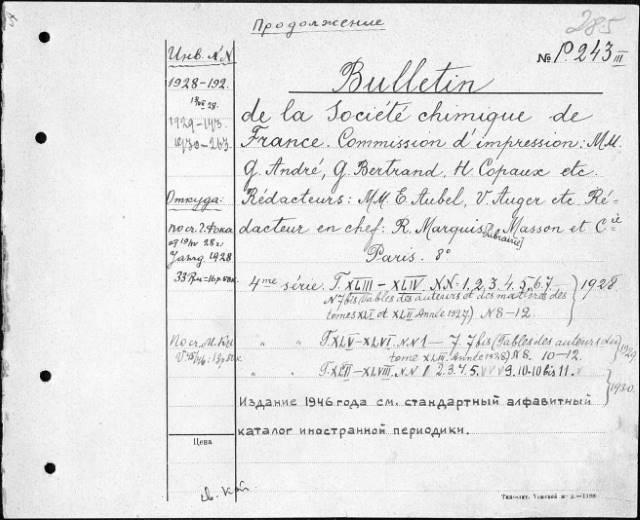 Продолжение
285
№ P. 243 III
Инв. №№
1928–192.
1929–193.
1930–263.
Откуда:
Цена
Bulletin
de la Société chimique de
France. Commission d'impression: MM.
G. André, G. Bertrand, H. Copaux etc.
Rédacteurs: MM. E. Aubel, V. Auger etc. Ré-
dacteur en chef: R. Marquis. (Librairie) Masson et Cie
Paris. 8°
4me série. T. XLIII – XLIV. N.N. 1, 2, 3, 4, 5, 6, 7 } 1928
N 7 bis (Tables des auteurs et des matières des
tomes XLI et XLII Année 1927) N 8–12.
" " T. XLV–XLVI. N.N 1 – 7. 7 bis (Tables des auteurs des
tome XLIII. Année 1928) N 8. 10–12. } 1929
" " T. XLVII–XLVIII. N.N 1 2. 3. 4. 5. 9. 10. 10 bis 11. } 1930.
Издание 1946 года см. стандартный алфавитный
каталог иностранной периодики.